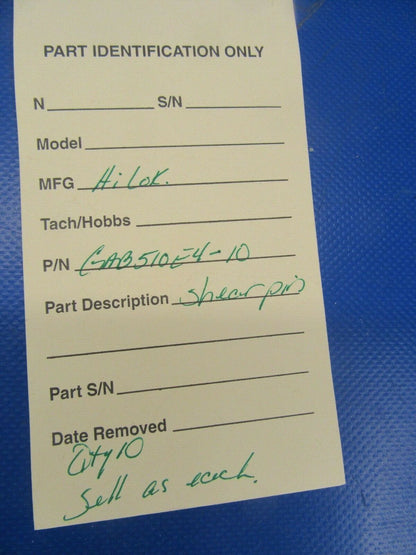 PART IDENTIFICATION ONLY
N S/N
Model
MFG Hi Lok.
Tach/Hobbs
P/N GAB510E4-10
Part Description shear pin
Part S/N
Date Removed
Qty 10
Sell as each.